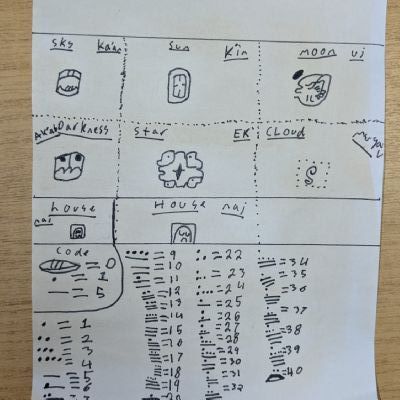 Sky Kaan
Sun Kin
moon uj
Darkness
Star EK'
CLOUD
house naj
House naj
Code
= 0
. = 1
— = 5
.... = 9
= 10
= 11
= 12
= 13
= 14
= 15
= 16
= 17
= 18
= 19
= 20
= 22
= 23
= 24
= 25
= 26
= 27
= 28
= 29
= 30
= 31
= 32
= 34
= 35
= 36
= 37
= 38
= 39
= 40
. = 1
.. = 2
... = 3
.... = 4
— = 5
= 6
= 7